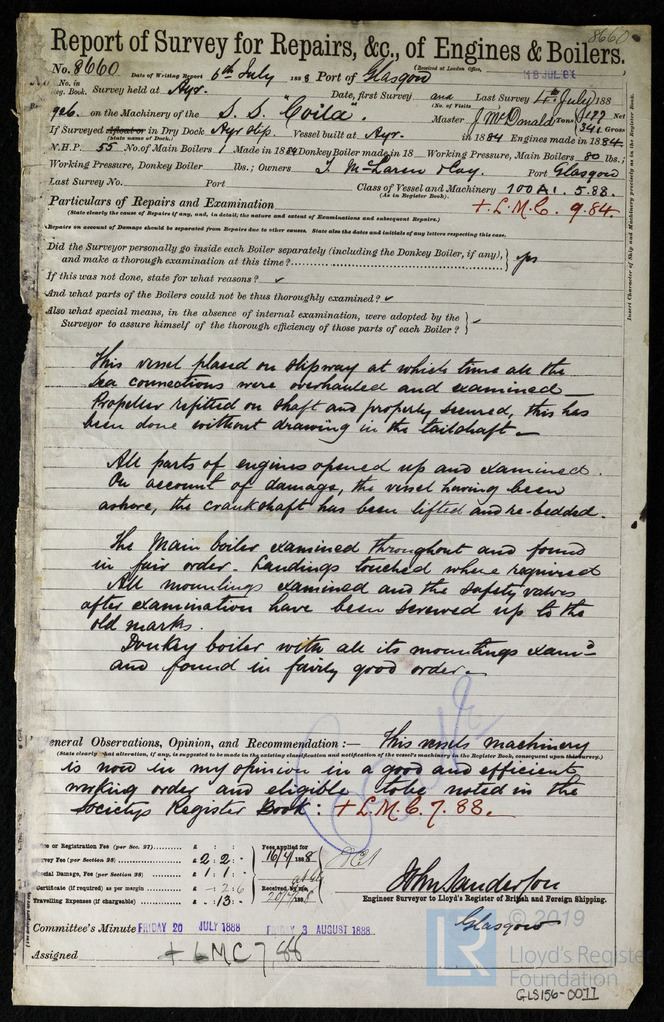 8660
Report of Survey for Repairs, &c., of Engines & Boilers.
(Received at London Office,
18 JUL 88
No. 8660 Date of Writing Report 6th July 1888 Port of Glasgow
No. in Reg. Book. Survey held at Ayr. Date, first Survey and Last Survey 4th July 188
(No. of Visits
946 on the Machinery of the S.S. "Coila" Master J. McDonald Tons 177 Net 341 Gross
If Surveyed Afloat or in Dry Dock Ayr Slip Vessel built at Ayr. in 1884 Engines made in 1884
(State name of Dock.)
N.H.P. 55 No. of Main Boilers 1 Made in 1884 Donkey Boiler made in 18 Working Pressure, Main Boilers 80 lbs;
Working Pressure, Donkey Boiler lbs; Owners T. McLaren & Coy. Port Glasgow
Last Survey No. Port Class of Vessel and Machinery 100A1. 5.88.
(As in Register Book).
Particulars of Repairs and Examination + L.M.C. 9.84
(State clearly the cause of Repairs if any, and, in detail, the nature and extent of Examinations and subsequent Repairs.)
Repairs on account of Damage should be separated from Repairs due to other causes. State also the dates and initials of any letters respecting this case.
Did the Surveyor personally go inside each Boiler separately (including the Donkey Boiler, if any),
and make a thorough examination at this time? yes
If this was not done, state for what reasons?
And what parts of the Boilers could not be thus thoroughly examined?
Also what special means, in the absence of internal examination, were adopted by the
Surveyor to assure himself of the thorough efficiency of those parts of each Boiler?
Insert Character of Ship and Machinery precisely as in the Register Book.
This vessel placed on slipway at which time all the
Sea connections were overhauled and examined
Propeller refitted on shaft and properly secured, this has
been done without drawing in the tailshaft.
All parts of engines opened up and examined.
On account of damage, the vessel having been
ashore, the crankshaft has been lifted and re-bedded.
The Main boiler examined throughout and found
in fair order. Landings touched where required
All mountings examined and the safety valves
after examination have been screwed up to the
old marks.
Donkey boiler with all its mountings examd
and found in fairly good order.
General Observations, Opinion, and Recommendation:— This vessels machinery
(State clearly what alteration, if any, is suggested to be made in the existing classification and notification of the vessel's machinery in the Register Book, consequent upon this survey.)
is now in my opinion in a good and efficient
working order and eligible to be noted in the
Societys Register Book: + L.M.C. 7.88.
Fee or Registration Fee (per Sec. 27) £ : :
Survey Fee (per Section 28) £ 2 : 2 :
Special Damage, Fee (per Section 28) £ 1 : 1 :
Certificate (if required) as per margin - 2 : 6
Travelling Expenses (if chargeable) £ : 13 :
Fees applied for
16/7/1888
Received by me,
20/7/1888
John Sanderson
Engineer Surveyor to Lloyd's Register of British and Foreign Shipping.
Glasgow
Committee's Minute FRIDAY 20 JULY 1888 FRIDAY 3 AUGUST 1888
Assigned + LMC 7,88
© 2019
LR
Lloyd's Register
Foundation
GLS156-0077